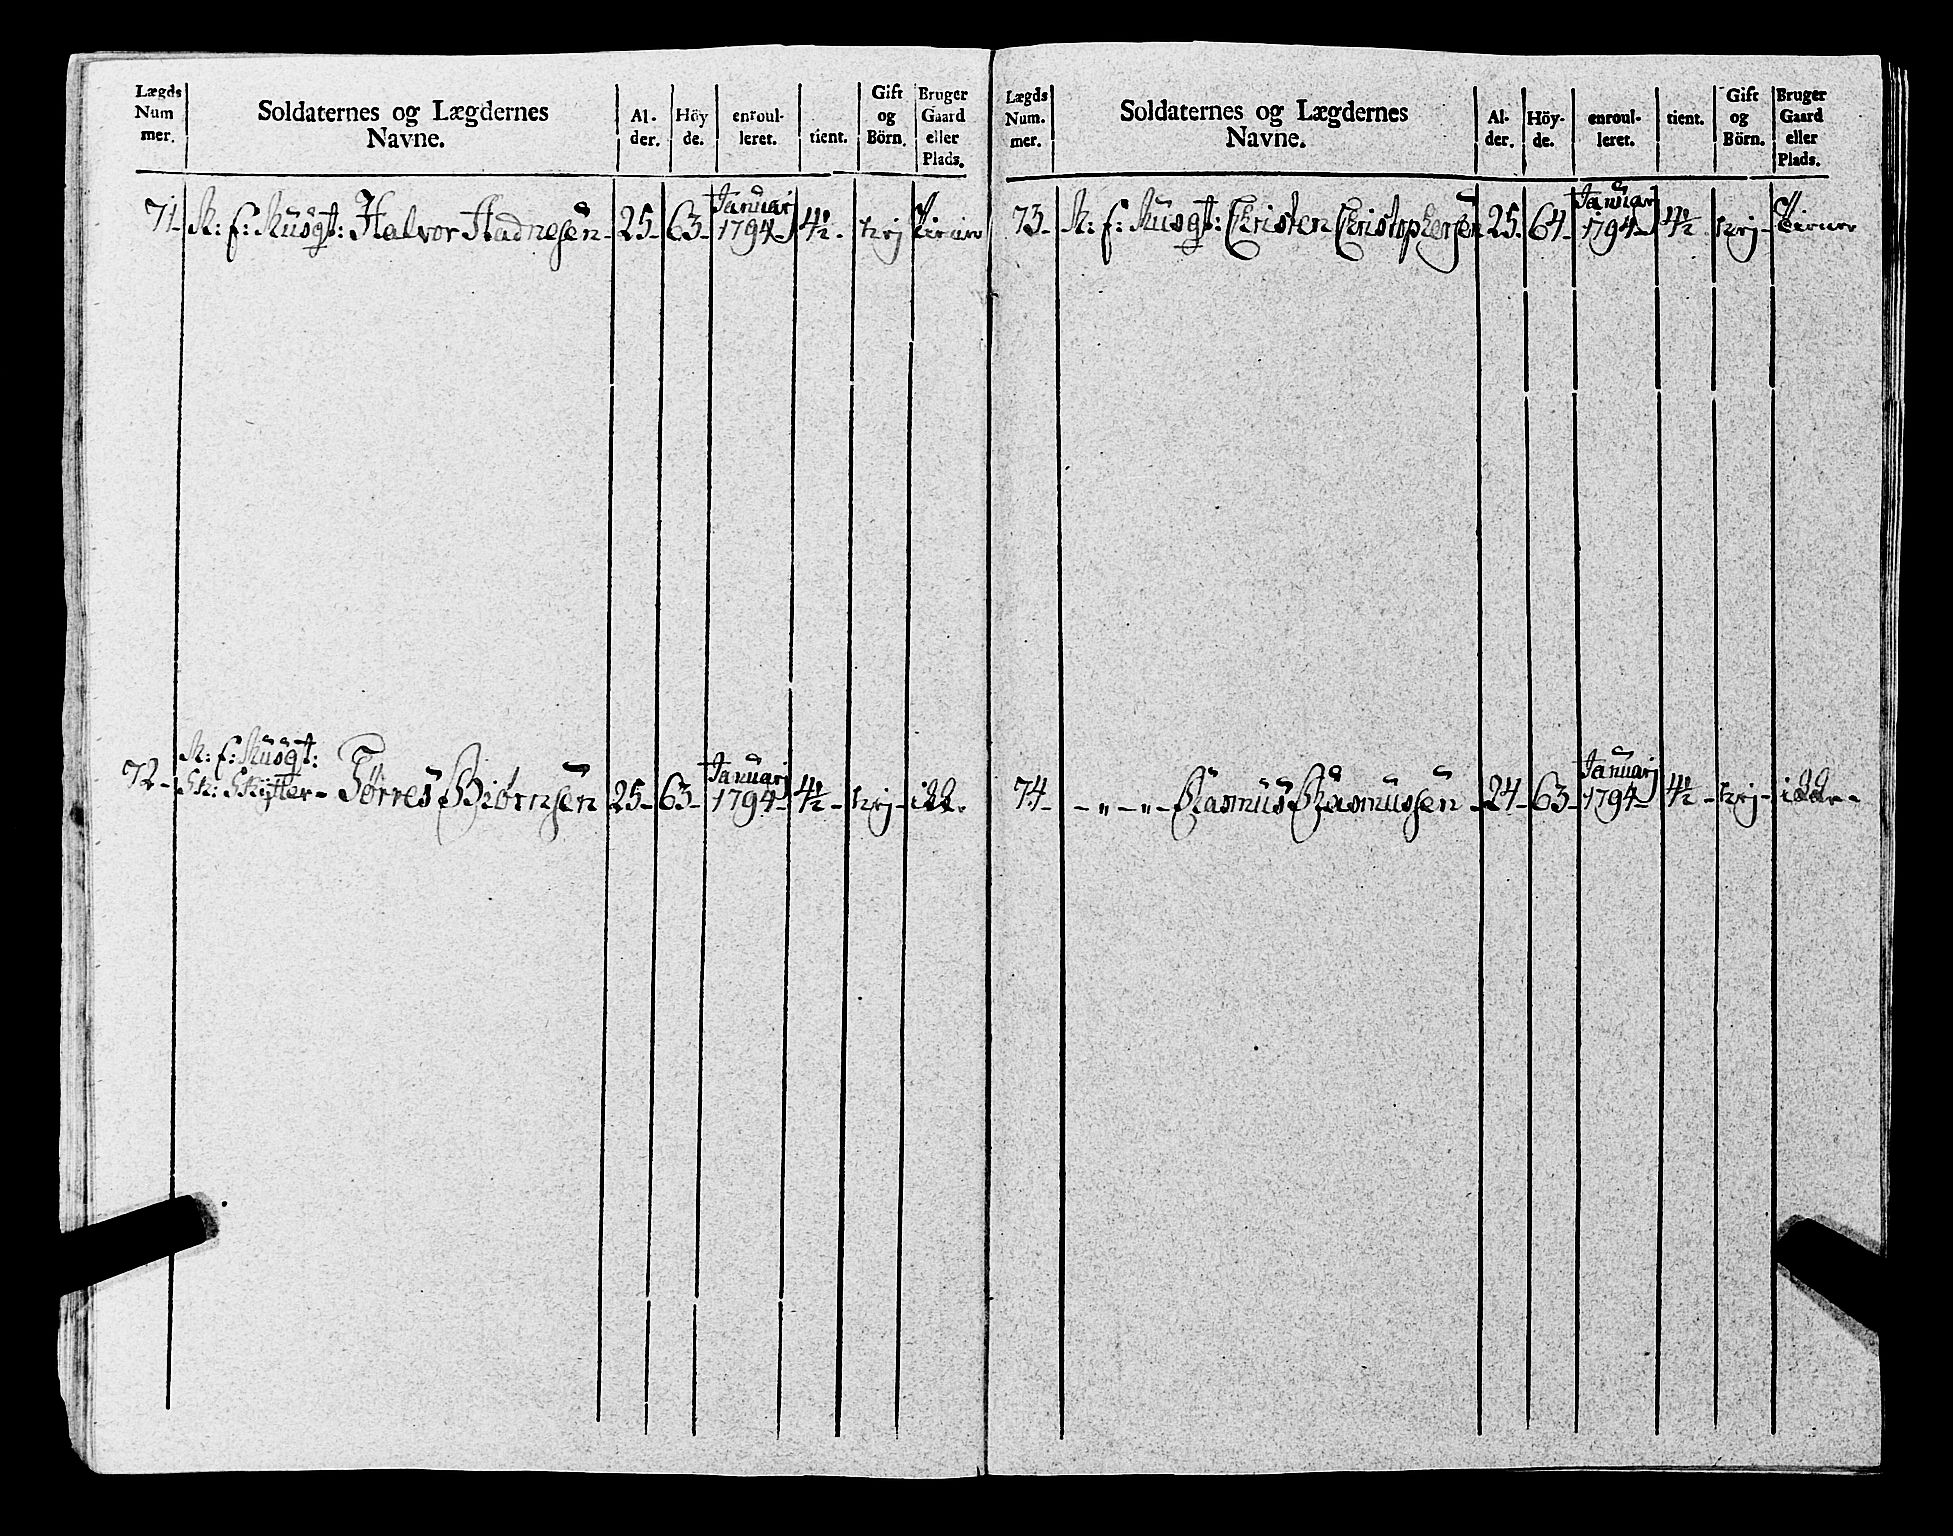 Lægds Num mer. Soldaternes og Lægdernes Navne. Al. der. Höy de. enroul- leret. tient. Gift og Börn. Bruger Gaard eller Plads.
71- M: f: Musqt: Halvor Hadnesen- 25- 63- Januarj 1794- 4½- Nej
72- M: f: Musqt: Sk: Skytter- Tørres Biörnsen 25- 63- Januarj 1794- 4½- Nej- ikk.
Lægds Num. mer. Soldaternes og Lægdernes Navne. Al- der. Höy- de. enroul- leret. tient. Gift og Börn. Bruger Gaard eller Plads.
73- M: f: Musqt: Christen Christophersen 25. 64- Januarj 1794- 4½ Nej-
74- -"-"- Rasmus Rasmussen- 24- 63- Januarj 1794- 4½- Nej- ikke-